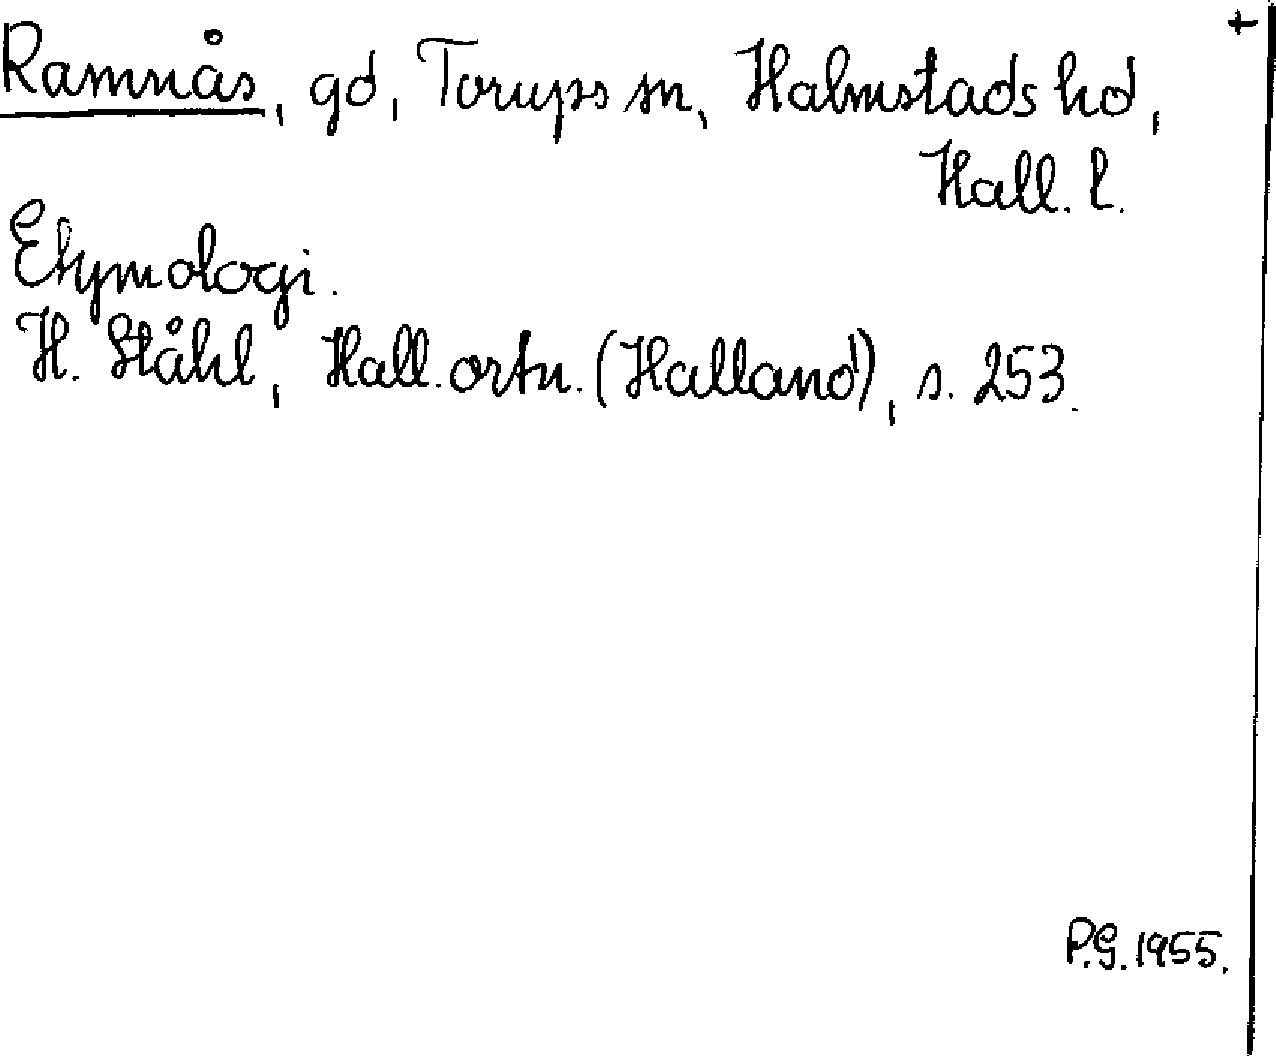 +
Ramnås, gd, Torups sn, Halmstads hd,
Hall. l.
Etymologi.
H. Ståhl, Hall. ortn. (Halland), s. 253.
P.G. 1955.